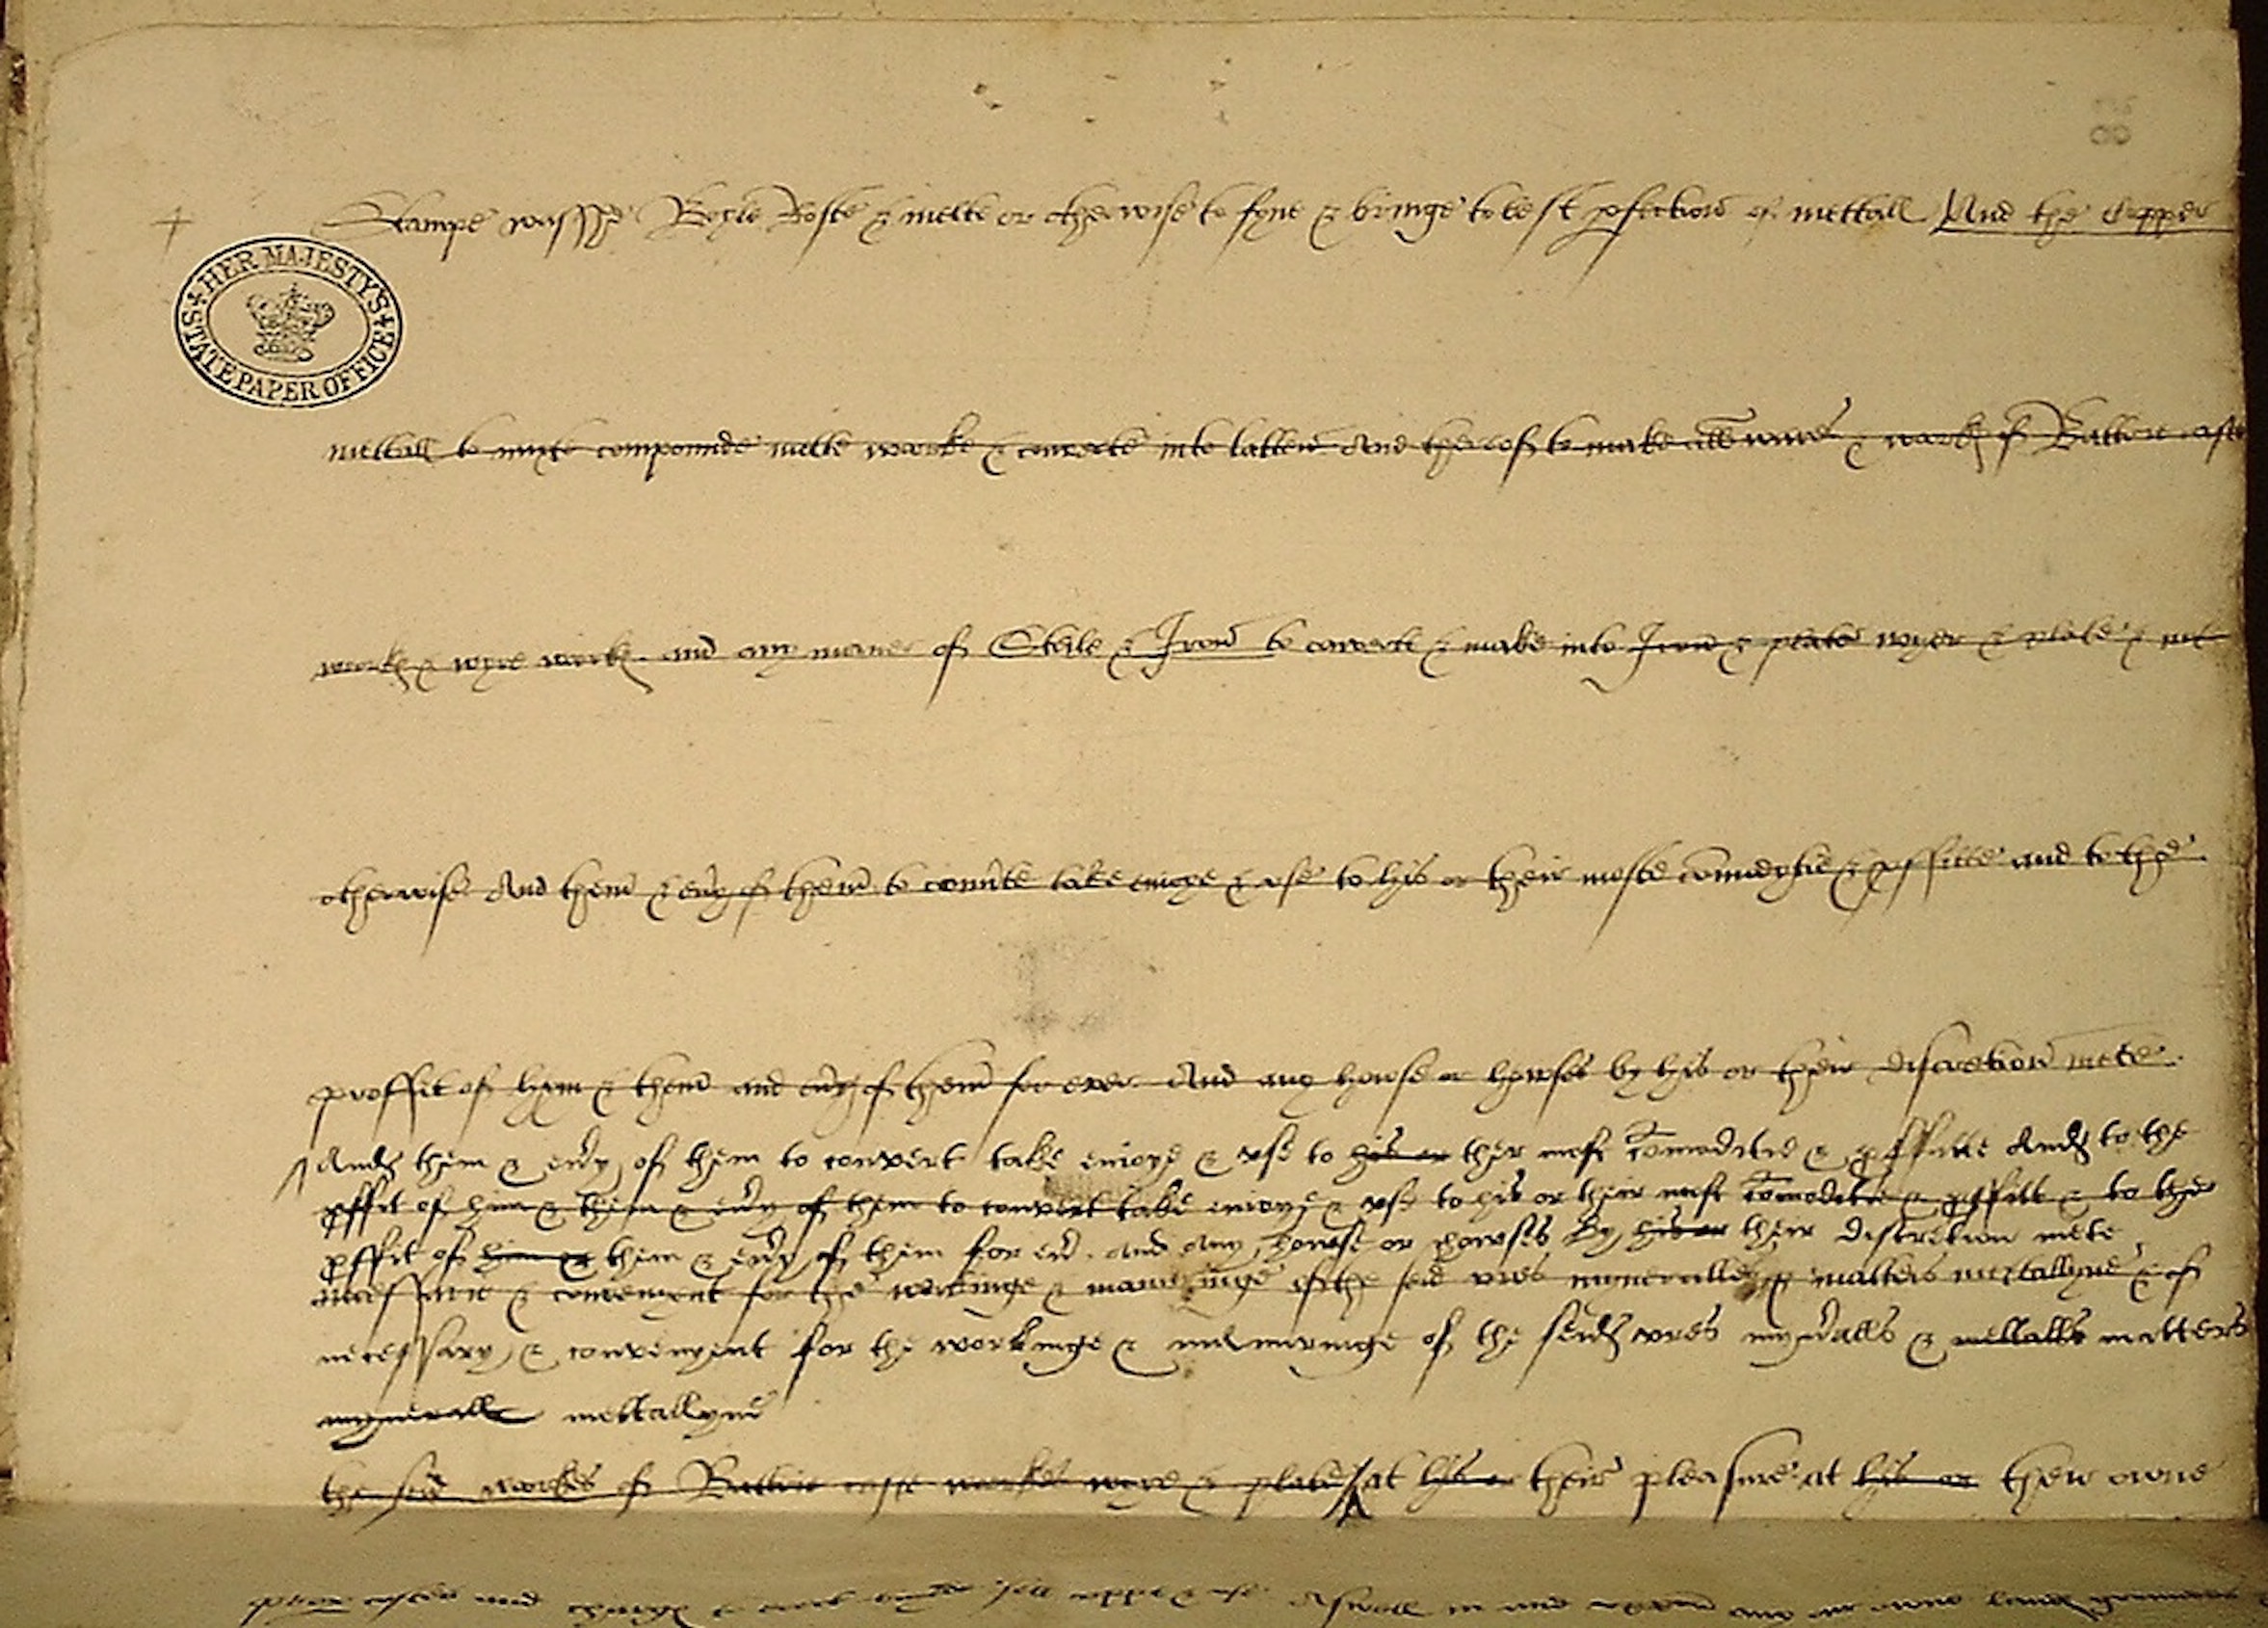 Stampe wasshe Boyle Roste & melte or otherwise to fyne & bringe to best pfection of mettall And the Copper
HER MAJESTY'S STATE PAPER OFFICE
mettall to mixte compounde melte worke & converte into latten And therof to make all wares & works of Battrie caste
works & wyre works and any maner of Stele & Iron to converte & make into Iron & plate wyer & plate &
otherwise And them & evy of them to converte take enioye & use to his or their moste comodytie & pffitte and to the
proffit of hym & them and evy of them for ever And any howse or howses by his or their discretion mete
And them & evy of them to convert take enioye & use to his or ther most comoditie & pffitte And to the
pffit of him & them & evy of them to convert take enioye & use to his or their most comoditie & pffitt & to the
pffit of him & them & evy of them for evr and any howse or howses By his or their discretion mete
necessarie & convenyent for the workinge & manuringe of the seid ures myneralles & matters mettallyne & of
necessary & convenyent for the workinge & manuringe of the seid ures mynralls & mettalls matters
mynerall mettallyne
the seid workes of Battrie caste workes wyre & plate at his or their pleasure at his or their owne
costes and charge sell & use Aswell in and any our owne lands grounds